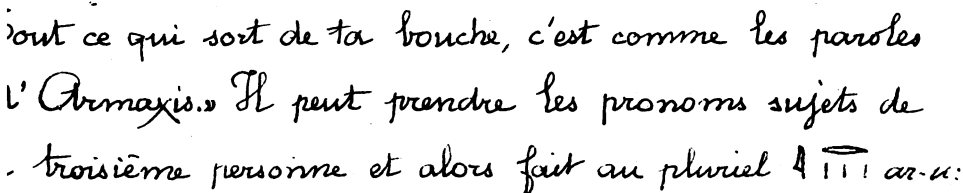 out ce qui sort de ta bouche, c'est comme les paroles
d'Armaxis.» Il peut prendre les pronoms sujets de
troisième personne et alors fait au pluriel ar-u: